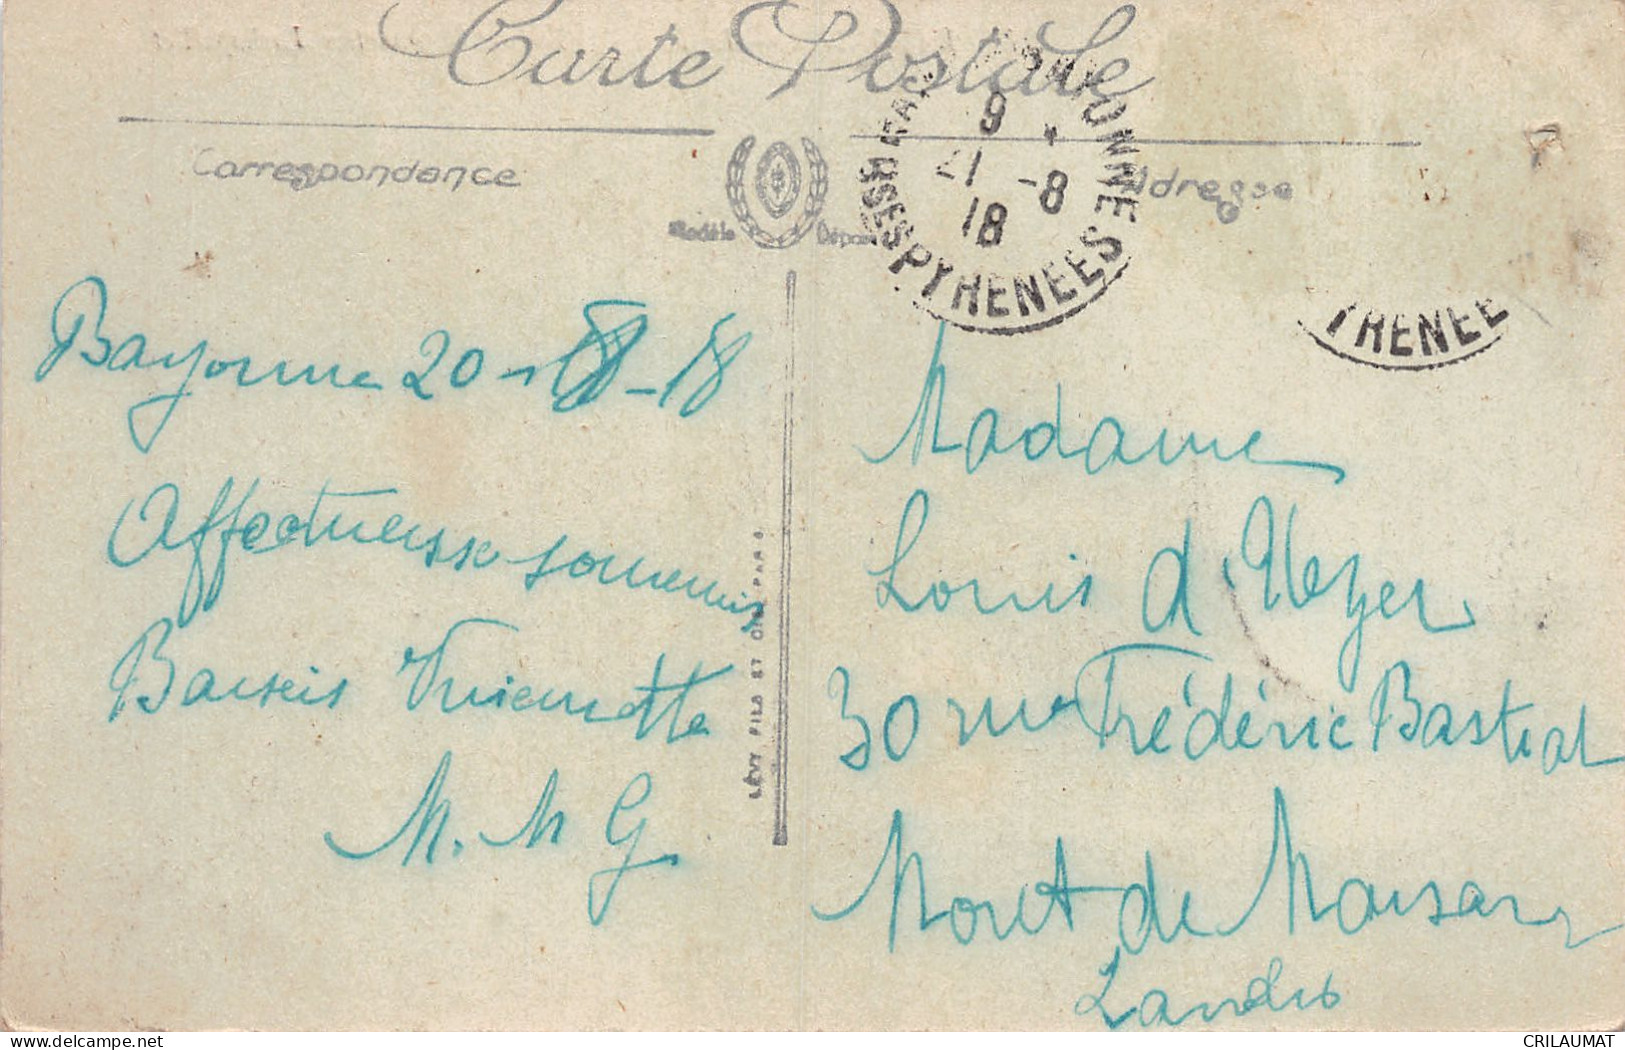 Carte Postale
Correspondance
Adresse
Modèle Déposé
BAYONNE
9 *
21 -8
18
BSSES PYRENEES
YRENEE
Bayonne 20-8-18
Affectueusse souvenis
Baiseis
M. M G
LÉVY FILS ET CIE, PARIS
Madame
Louis d
30 rue Frédéric Bastiat
Mont de Marsan
Landes
delcampe.net
CRILAUMAT